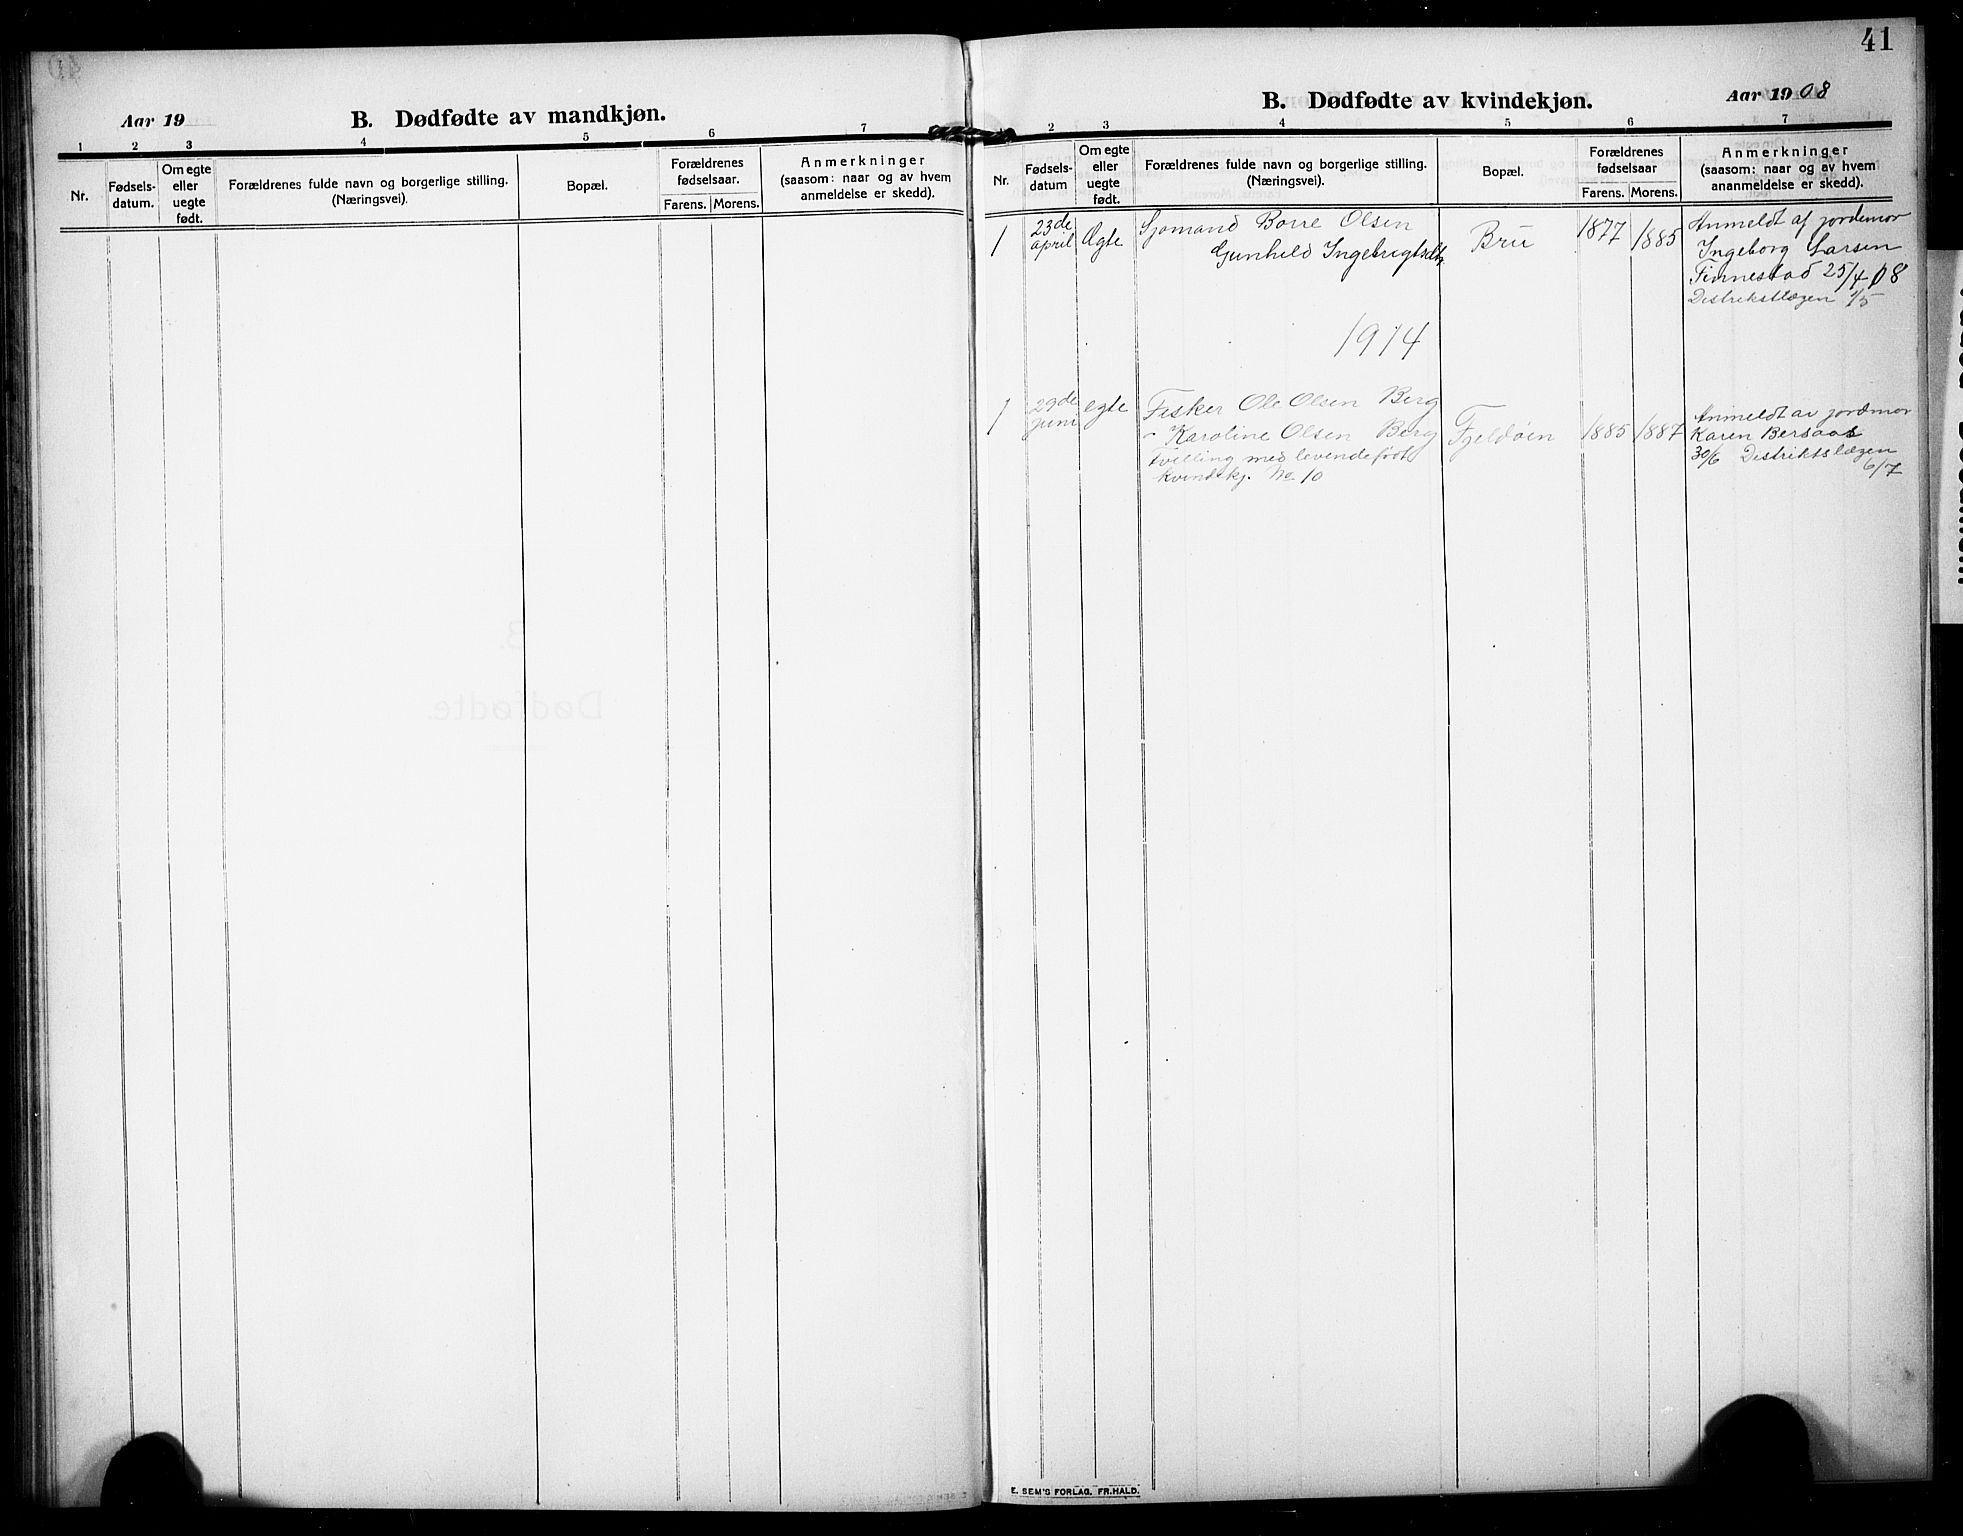 Aar 19
B. Dødfødte av mandkjøn.
1 2 3 4 5 6 7
Nr.
Fødsels-
datum.
Om egte
eller
uegte
født.
Forældrenes fulde navn og borgerlige stilling.
(Næringsvei).
Bopæl.
Forældrenes
fødselsaar.
Farens. Morens.
Anmerkninger
(saasom: naar og av hvem
anmeldelse er skedd).
41
B. Dødfødte av kvindekjøn.
Aar 1908
2 3 4 5 6 7
Nr.
Fødsels-
datum
Om egte
eller
uegte
født.
Forældrenes fulde navn og borgerlige stilling.
(Næringsvei).
Bopæl.
Forældrenes
fødselsaar
Farens. Morens.
Anmerkninger
(saasom: naar og av hvem
ananmeldelse er skedd).
1
23de
april
Ægte
Sjømand Børre Olsen
Gunhild Ingebrigtsdtr.
Bru
1877
1885
Anmeldt af jordemor
Ingeborg Larsen
Finnestad 25/4 08
Distriktslægen 1/5
1914
1
29de
juni
egte
Fisker Ole Olsen Berg
- Karoline Olsen Berg
Tvilling med levendefødt
kvindekj. No 10
Fjeldøen
1885
1887
Anmeldt av jordmor
Karen Bersaas
30/6 Distriktslægen
6/7
E. SEM'S FORLAG, FR.HALD.